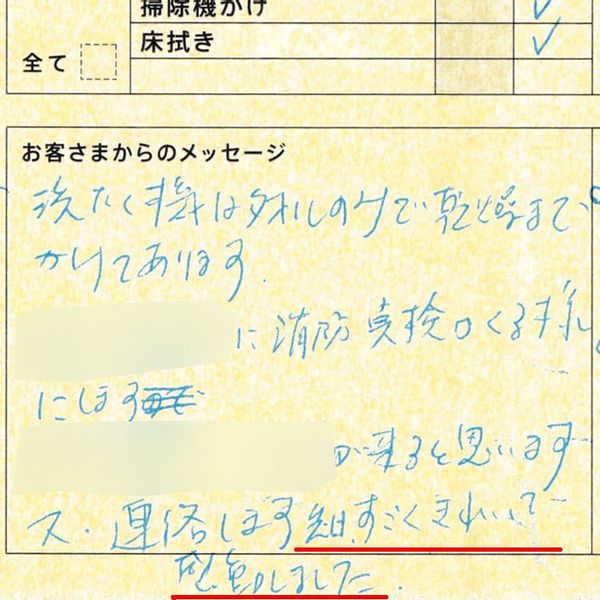 掃除機がけ
床拭き
全て
お客さまからのメッセージ
洗たく機はタオルのみで乾燥まで
かけてあります.
に消防点検がくる様
にします
が来ると思います
又、連絡します 先日、すごくきれいで
感動しました.